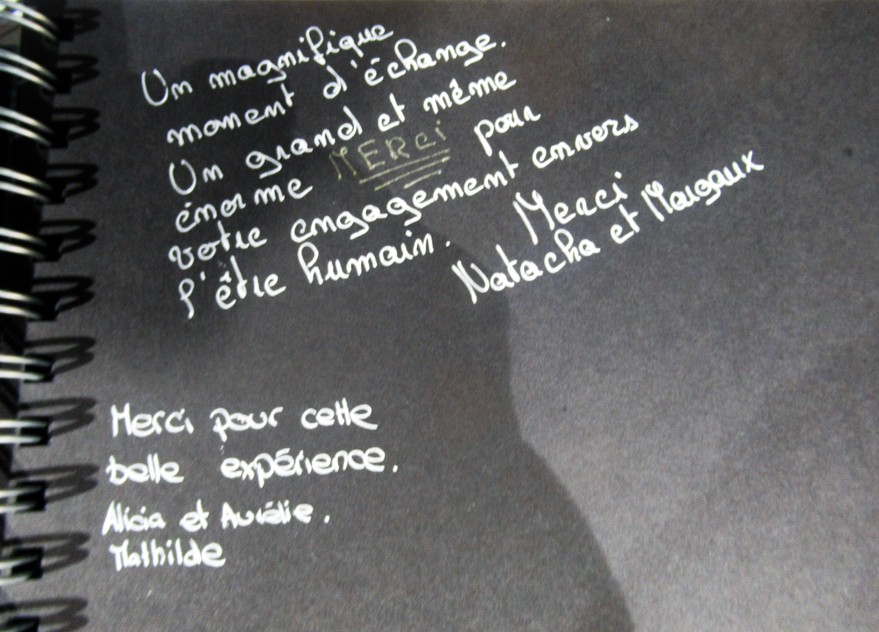 Un magnifique
moment d'échange.
Un grand et même
énorme MERCi pour
votre engagement envers
l'être humain. Merci
Natacha et Margaux
Merci pour cette
belle expérience.
Alicia et Aurélie.
Mathilde